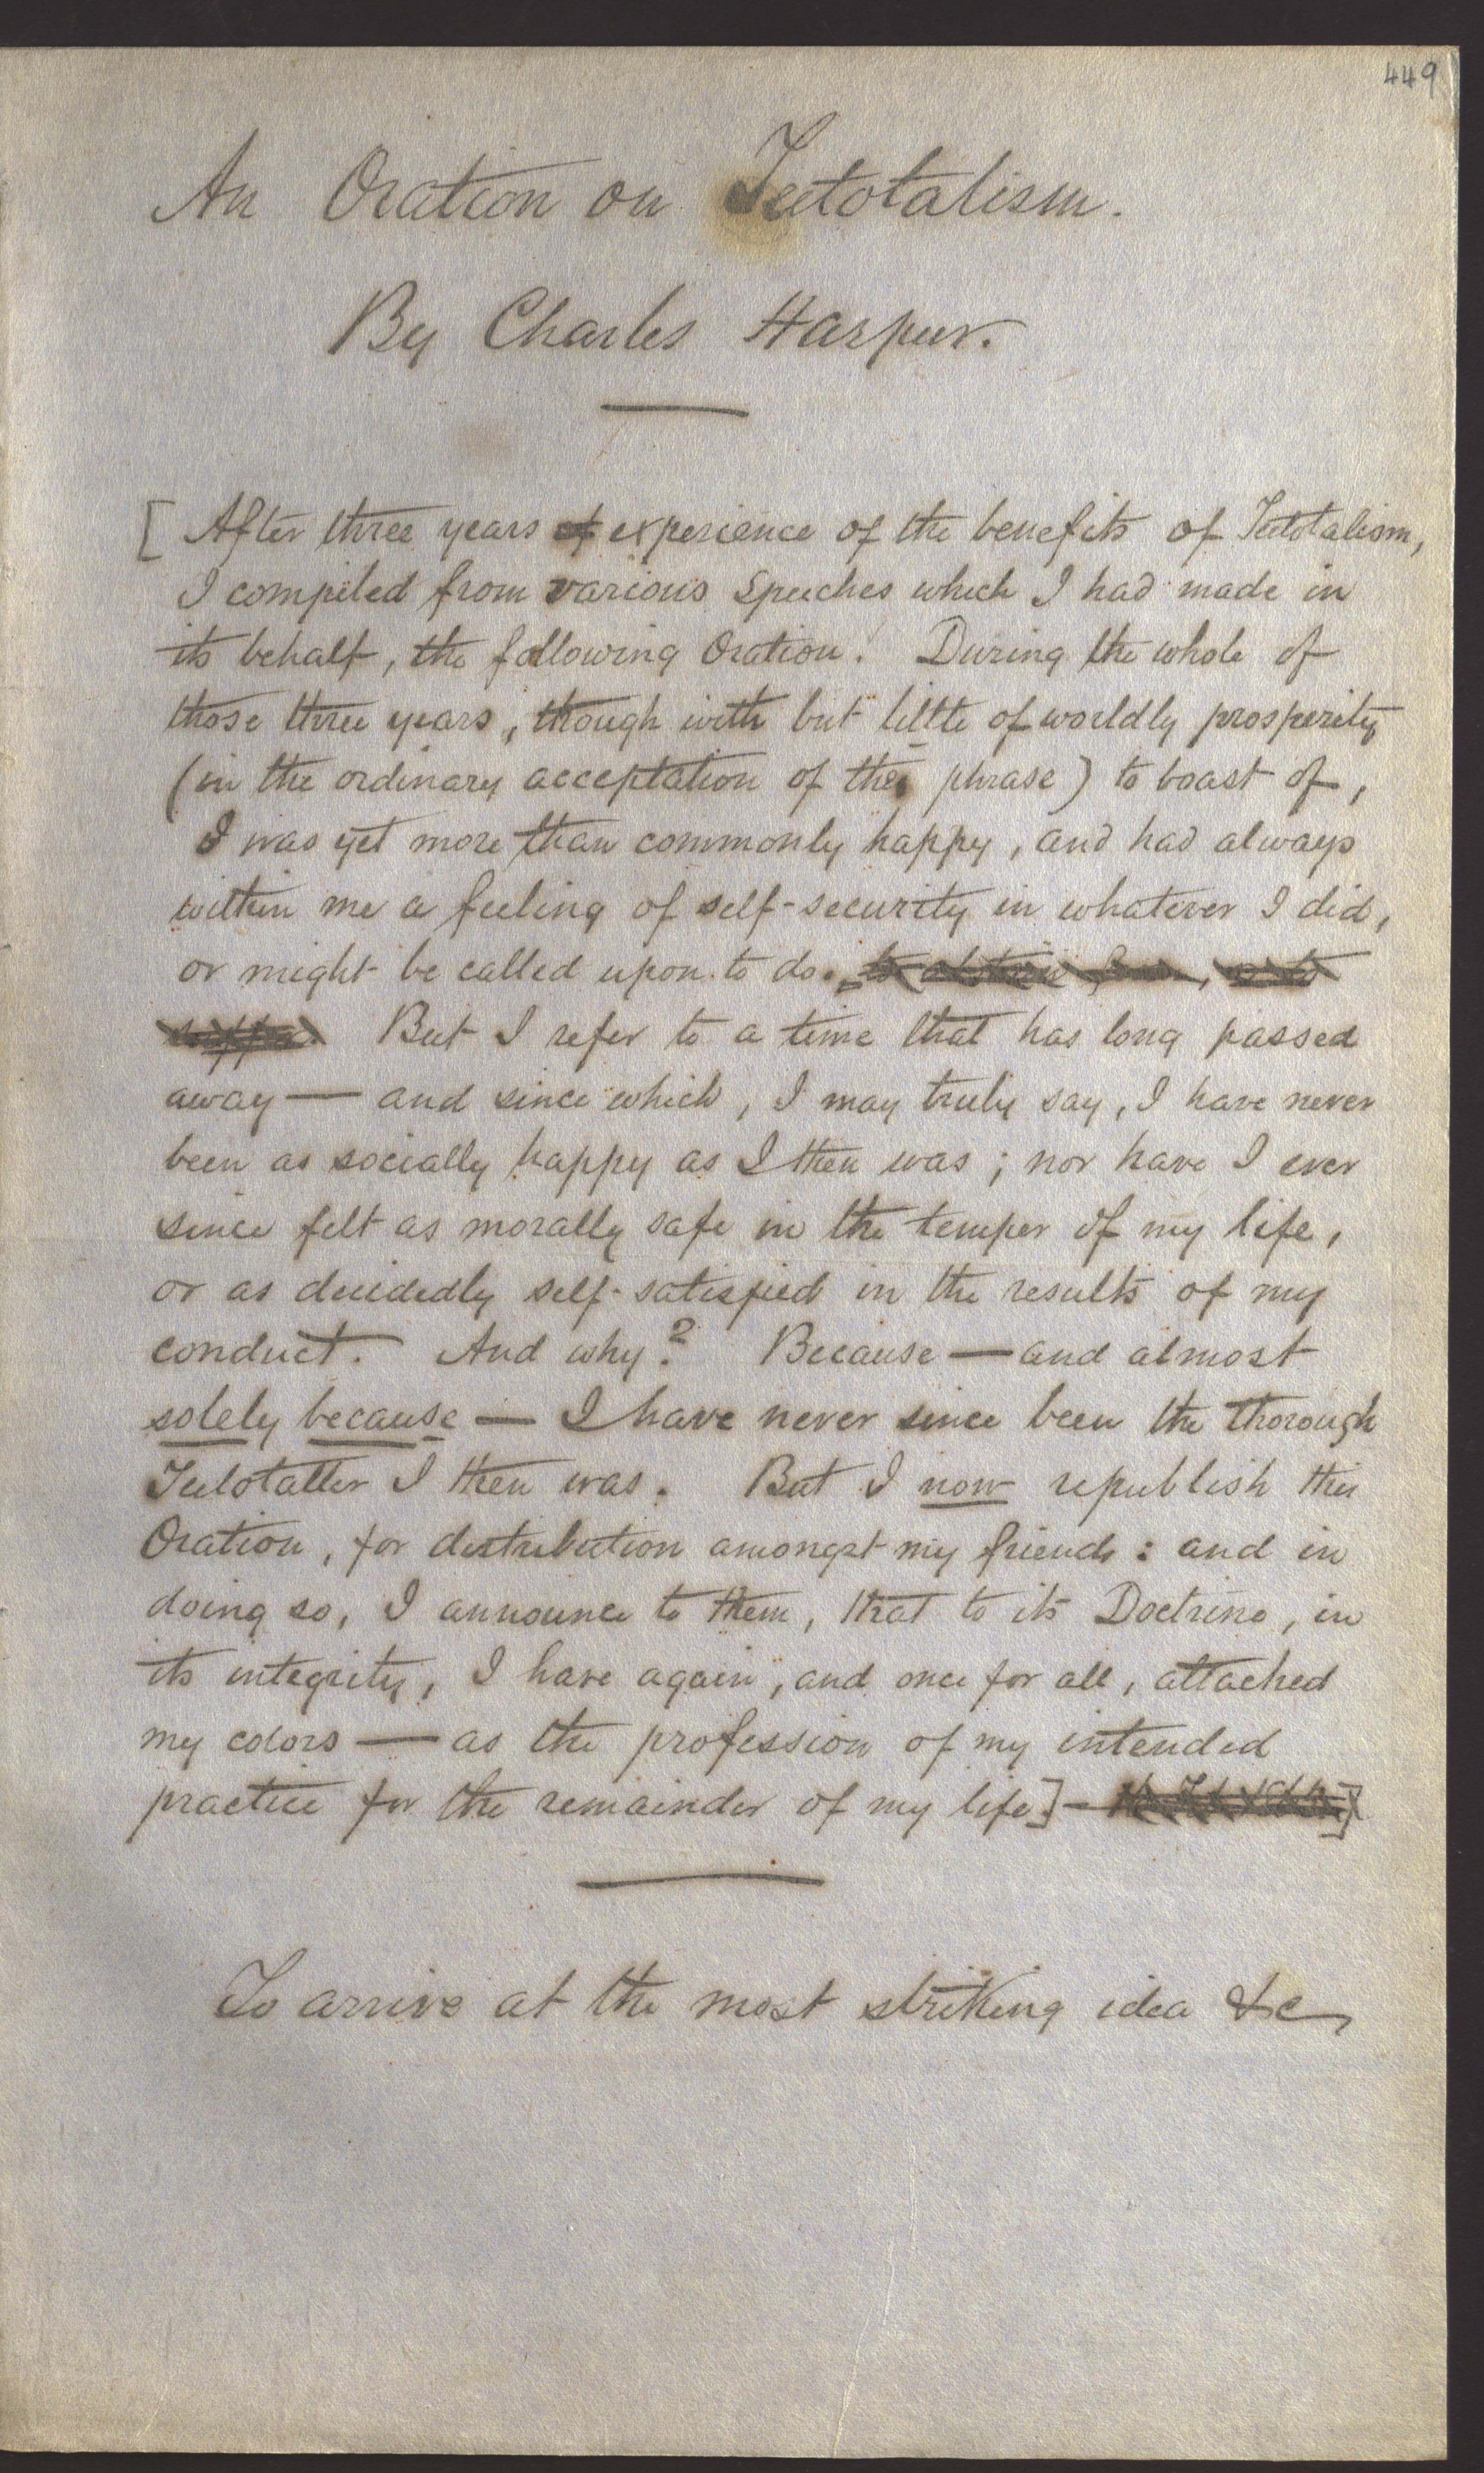 449
An Oration on Teetotalism.
By Charles Harpur.
[After three years of experience of the benefits of Teetotalism,
I compiled from various Speeches which I had made in
its behalf, the following Oration. During the whole of
those three years, though with but little of worldly prosperity
(in the ordinary acceptation of the phrase) to boast of,
I was yet more than commonly happy, and had always
within me a feeling of self-security in whatever I did,
or might be called upon to do.
But I refer to a time that has long passed
away — and since which, I may truly say, I have never
been as socially happy as I then was; nor have I ever
since felt as morally safe in the temper of my life,
or as decidedly self-satisfied in the results of my
conduct. And why? Because — and almost
solely because — I have never since been the thorough
Teetotaller I then was. But I now republish this
Oration, for distribution amongst my friends: and in
doing so, I announce to them, that to its Doctrine, in
its integrity, I have again, and once for all, attached
my colors — as the profession of my intended
practice for the remainder of my life.]
To arrive at the most striking idea &c